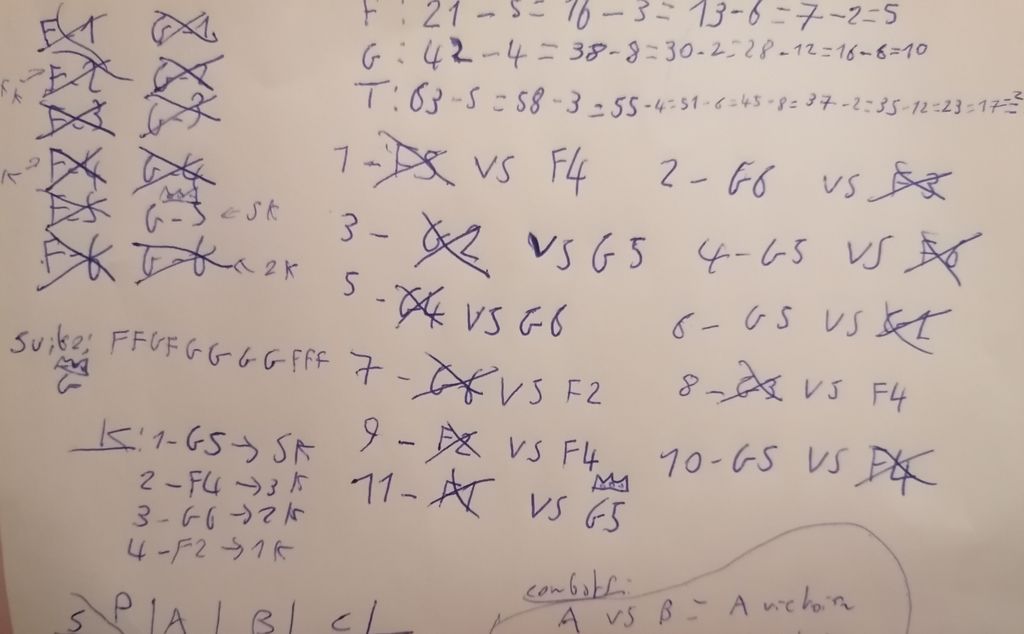 F : 21 - 5 = 16 - 3 = 13 - 6 = 7 - 2 = 5
G : 42 - 4 = 38 - 8 = 30 - 2 = 28 - 12 = 16 - 6 = 10
T : 63 - 5 = 58 - 3 = 55 - 4 = 51 - 6 = 45 - 8 = 37 - 2 = 35 - 12 = 23 = 17 =
F-1 G-1
F-2 G-2
F-3 G-3
F-4 G-4
F-5 G-5 ← 5K
F-6 G-6 ← 2K
1 - F5 VS F4 2 - G6 VS F3
3 - G2 VS G5 4 - G5 VS F6
5 - G4 VS G6 6 - G5 VS G1
7 - G6 VS F2 8 - G3 VS F4
9 - F2 VS F4 10 - G5 VS F4
11 - F1 VS G5
FFGFGGGGFFF
G
K: 1 - G5 → 5K
2 - F4 → 3K
3 - G6 → 2K
4 - F2 → 1K
S P | A | B | C |
combats:
A VS B = A victoire